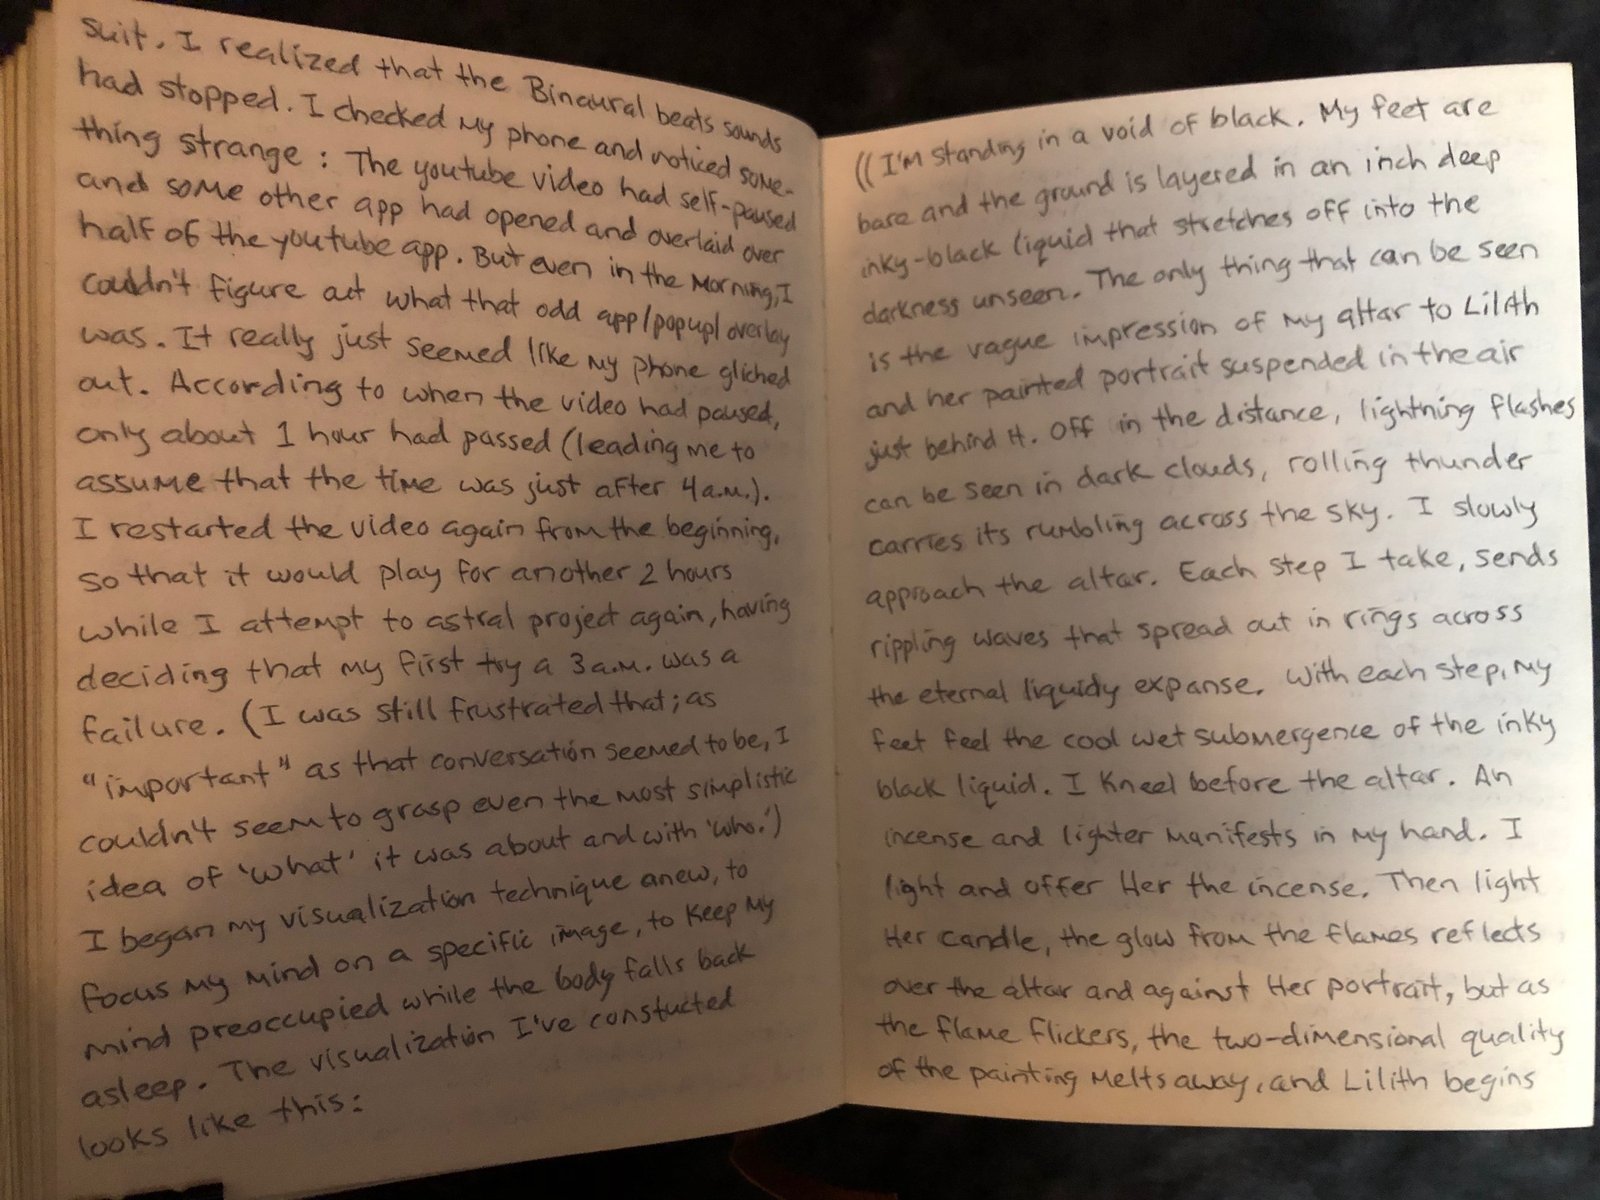 suit. I realized that the Binaural beats sounds
had stopped. I checked my phone and noticed some-
thing strange : The youtube video had self-paused
and some other app had opened and overlaid over
half of the youtube app. But even in the morning, I
couldn't figure out what that odd app/popup/overlay
was. It really just seemed like my phone gliched
out. According to when the video had paused,
only about 1 hour had passed (leading me to
assume that the time was just after 4a.m.).
I restarted the video again from the beginning,
so that it would play for another 2 hours
while I attempt to astral project again, having
deciding that my first try a 3a.m. was a
failure. (I was still frustrated that; as
"important" as that conversation seemed to be, I
couldn't seem to grasp even the most simplistic
idea of 'what' it was about and with 'who.')
I began my visualization technique anew, to
focus my mind on a specific image, to keep my
mind preoccupied while the body falls back
asleep. The visualization I've constucted
looks like this:
((I'm standing in a void of black. My feet are
bare and the ground is layered in an inch deep
inky-black liquid that stretches off into the
darkness unseen. The only thing that can be seen
is the vague impression of my altar to Lilith
and her painted portrait suspended in the air
just behind it. Off in the distance, lightning flashes
can be seen in dark clouds, rolling thunder
carries its rumbling across the sky. I slowly
approach the altar. Each step I take, sends
rippling waves that spread out in rings across
the eternal liquidy expanse. With each step, my
feet feel the cool wet submergence of the inky
black liquid. I kneel before the altar. An
incense and lighter manifests in my hand. I
light and offer Her the incense. Then light
Her candle, the glow from the flames reflects
over the altar and against Her portrait, but as
the flame flickers, the two-dimensional quality
of the painting melts away, and Lilith begins